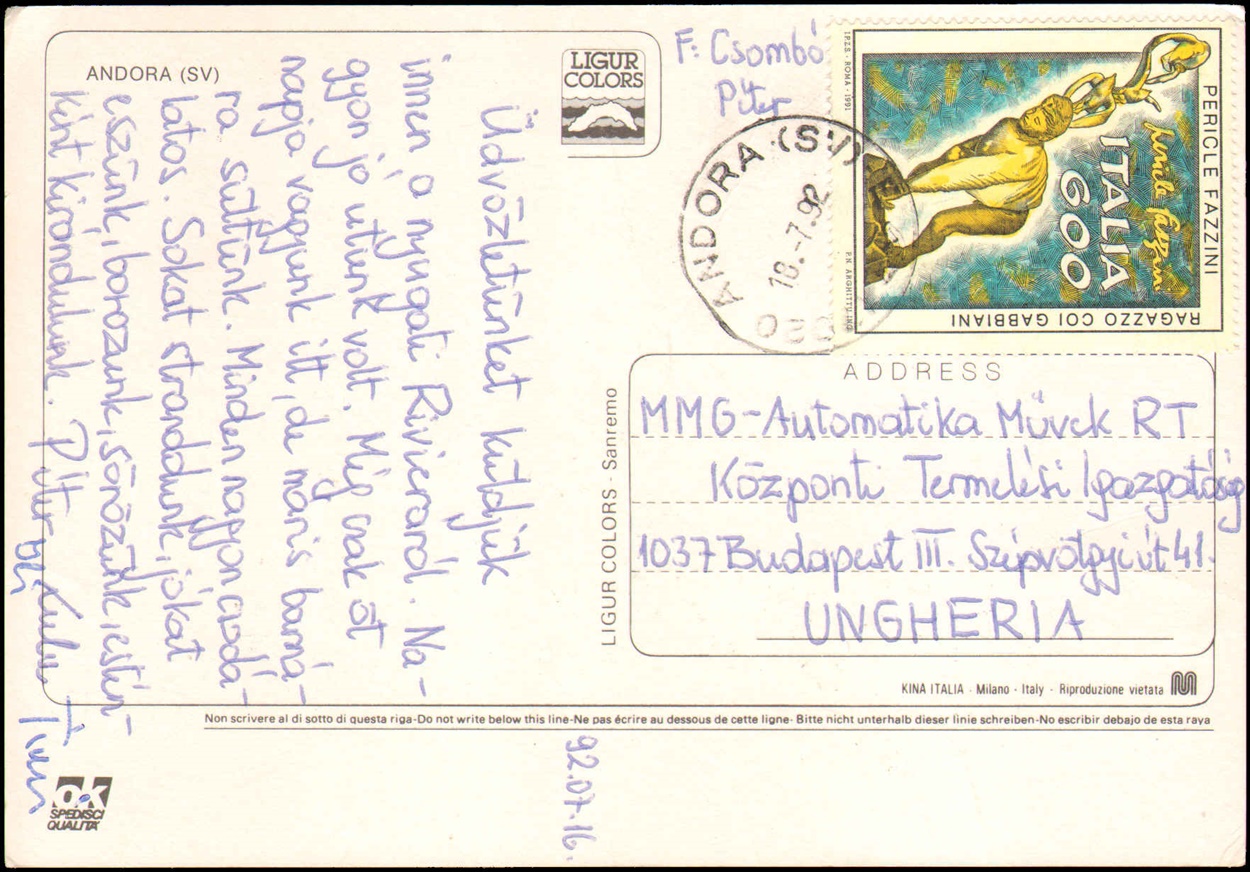 ANDORA (SV)
LIGUR
COLORS
Üdvözletünket küldjük
innen a nyugati Rivieraról. Na-
gyon jó utunk volt. Még csak öt
napja vagyunk itt, de máris barná-
ra sültünk. Minden nagyon csodá-
latos. Sokat strandolunk, jókat
eszünk, borozunk, sörözünk, estén-
ként kirándulunk. Péter
92.07.16.
F: Csombó
Péter
ANDORA (SV)
18.-7.92
I.P.Z.S. - ROMA - 1991
PERICLE FAZZINI
ITALIA
600
RAGAZZO COI GABBIANI
LIGUR COLORS - Sanremo
ADDRESS
MMG-Automatika Művek RT
Központi Termelési Igazgatóság
1037 Budapest III. Szépvölgyi út 41.
UNGHERIA
KINA ITALIA - Milano - Italy - Riproduzione vietata
Non scrivere al di sotto di questa riga-Do not write below this line-Ne pas écrire au dessous de cette ligne- Bitte nicht unterhalb dieser linie schreiben-No escribir debajo de esta raya
OK
SPEDISCI
QUALITA'